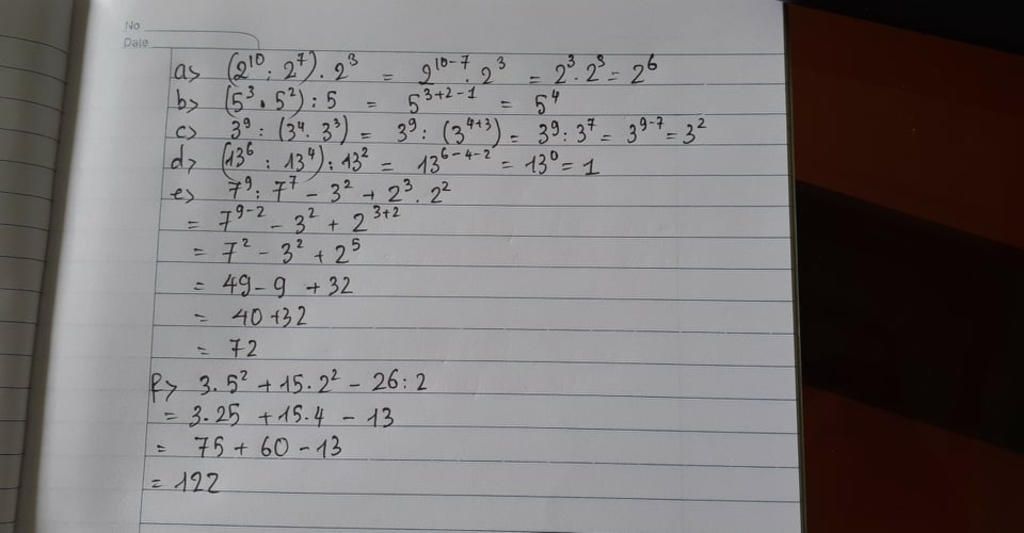 No
Date
a> (2¹⁰ : 2⁷) . 2³ = 2¹⁰⁻⁷ . 2³ = 2³ . 2³ = 2⁶
b> (5³ . 5²) : 5 = 5³⁺²⁻¹ = 5⁴
c> 3⁹ : (3⁴ . 3³) = 3⁹ : (3⁴⁺³) = 3⁹ : 3⁷ = 3⁹⁻⁷ = 3²
d> (13⁶ : 13⁴) : 13² = 13⁶⁻⁴⁻² = 13⁰ = 1
e> 7⁹ : 7⁷ - 3² + 2³ . 2²
= 7⁹⁻² - 3² + 2³⁺²
= 7² - 3² + 2⁵
= 49 - 9 + 32
= 40 + 32
= 72
f> 3 . 5² + 15 . 2² - 26 : 2
= 3 . 25 + 15 . 4 - 13
= 75 + 60 - 13
= 122